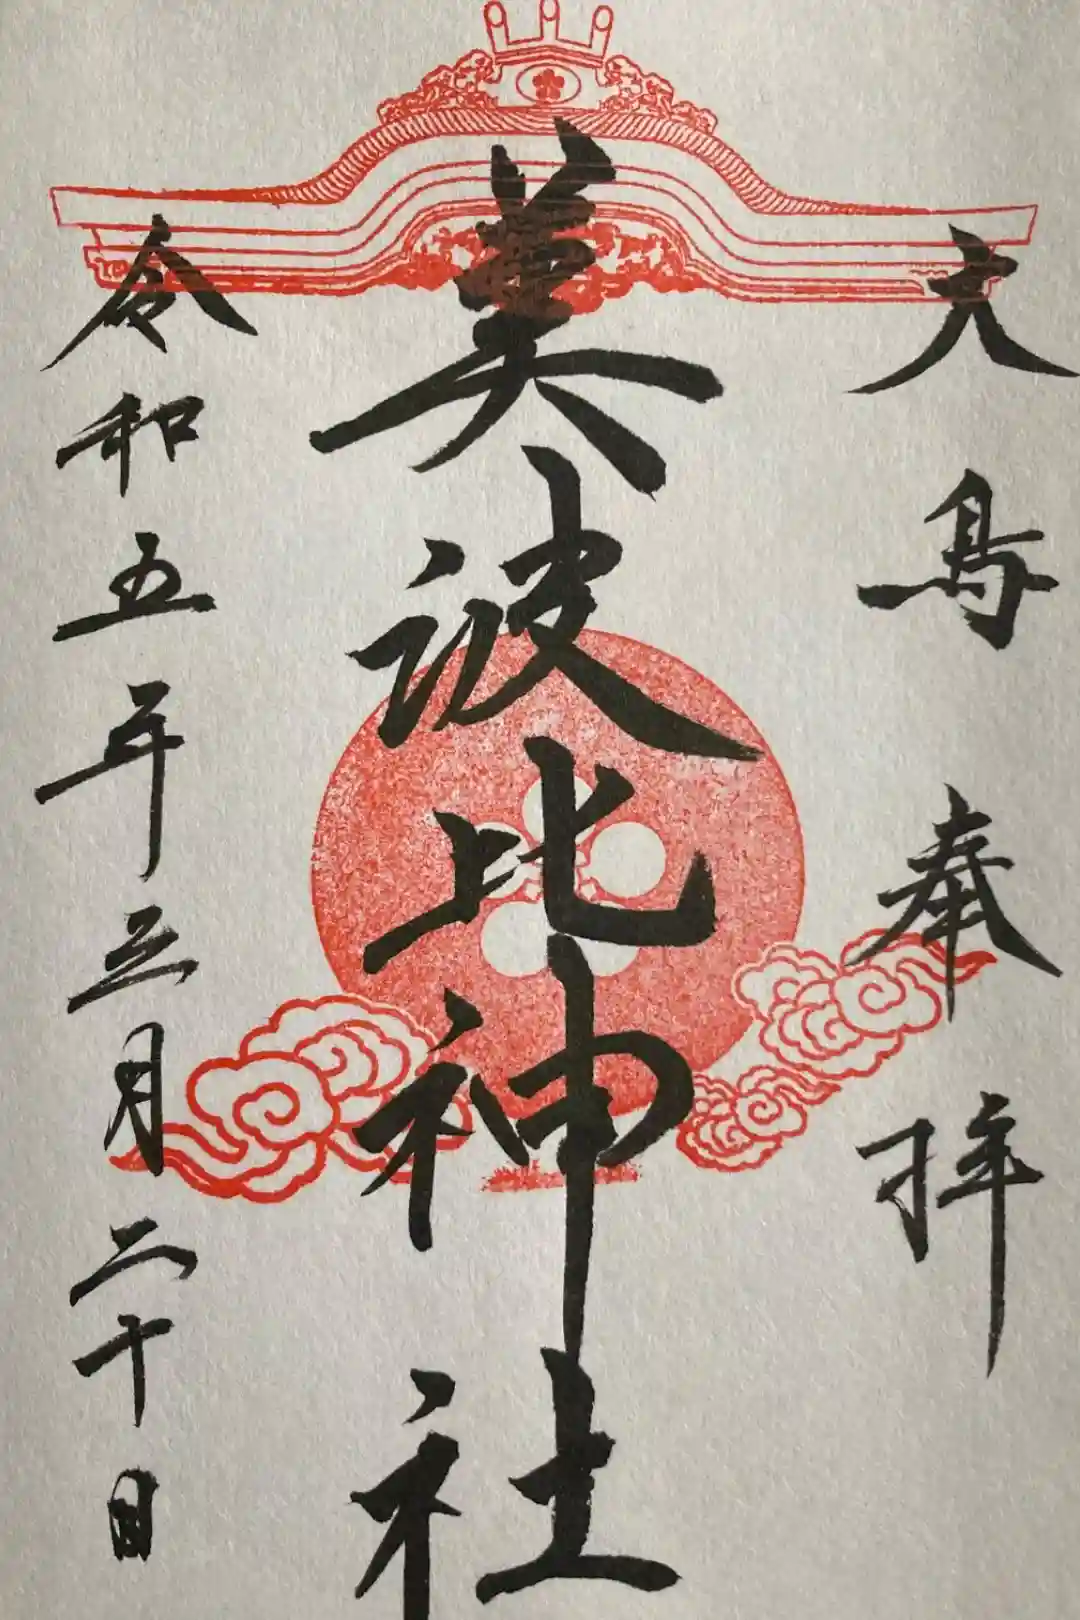 大鳥 奉拝
美波比神社
令和五年三月二十日